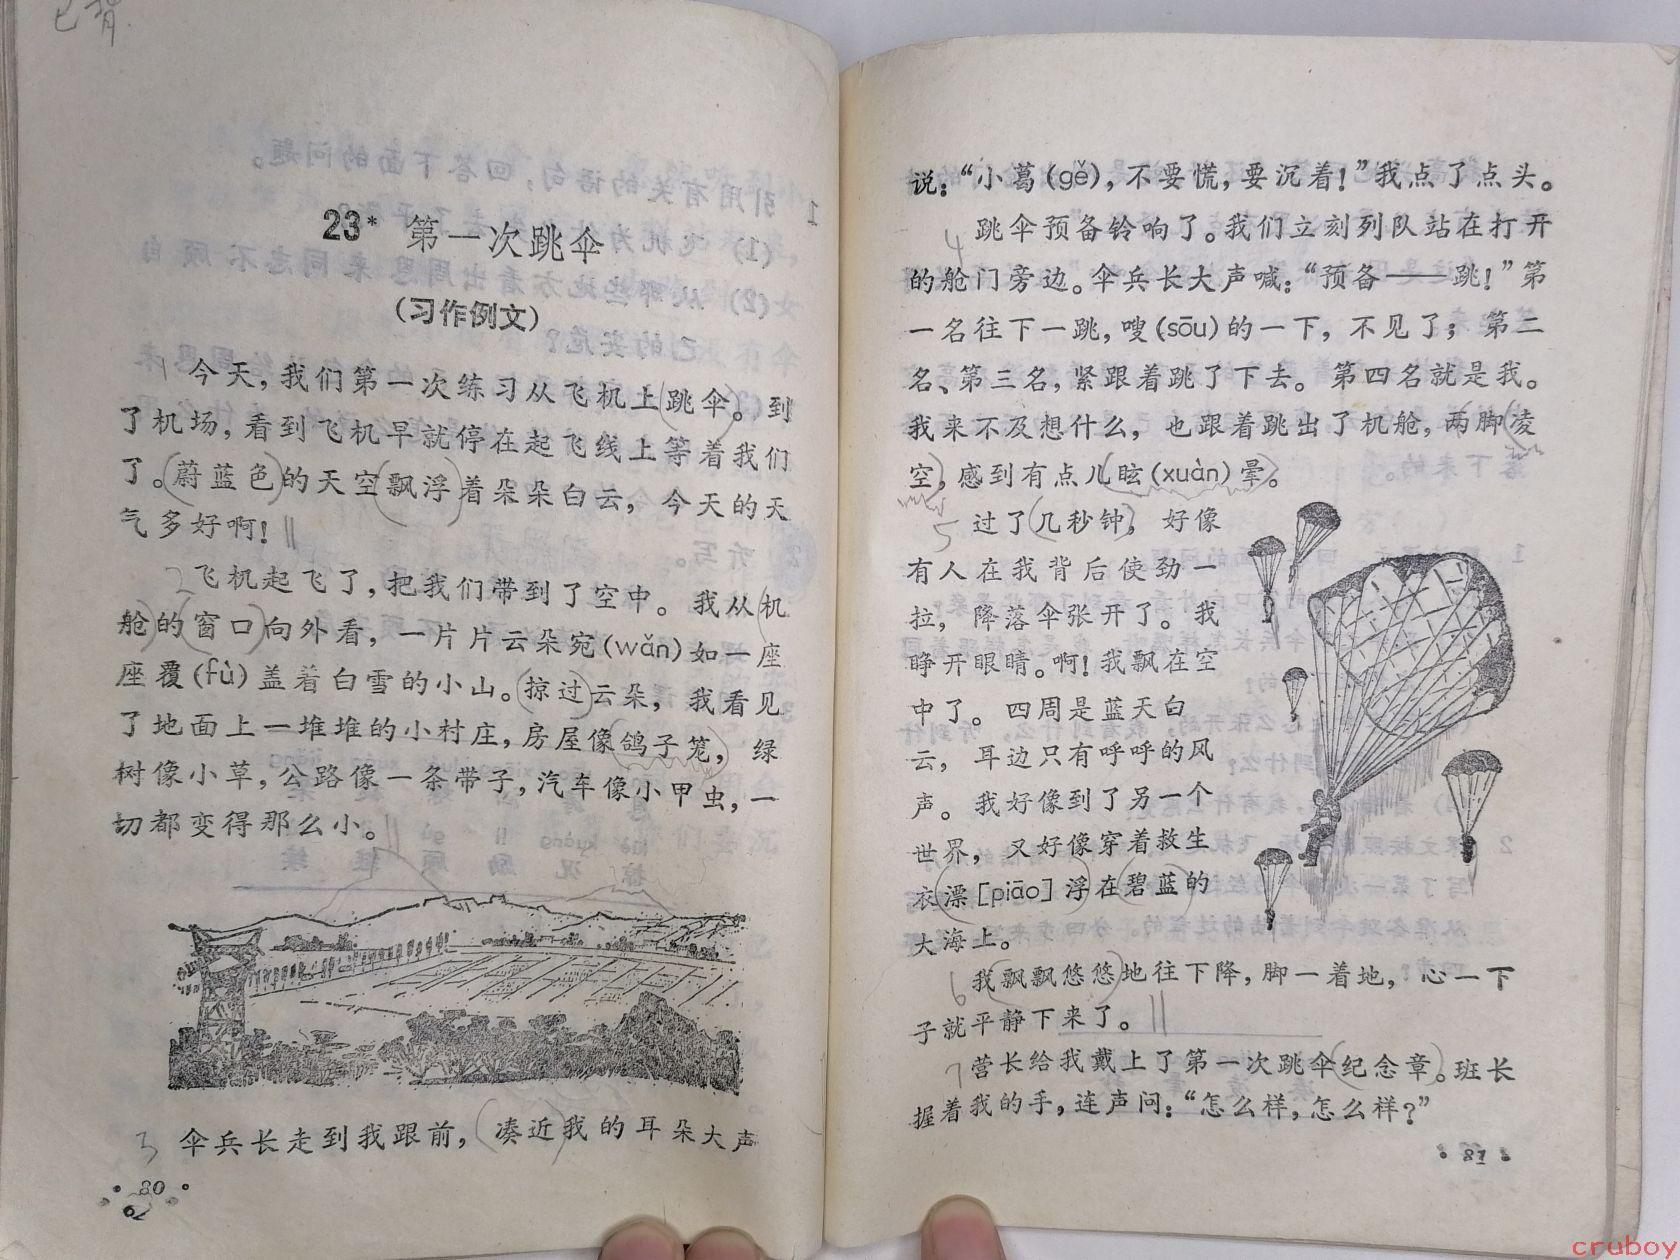 已背
23* 第一次跳伞
(习作例文)
1 今天,我们第一次练习从飞机上跳伞。到
了机场,看到飞机早就停在起飞线上等着我们
了。蔚蓝色的天空飘浮着朵朵白云,今天的天
气多好啊!
2 飞机起飞了,把我们带到了空中。我从机
舱的窗口向外看,一片片云朵宛(wǎn)如一座
座覆(fù)盖着白雪的小山。掠过云朵,我看见
了地面上一堆堆的小村庄,房屋像鸽子笼,绿
树像小草,公路像一条带子,汽车像小甲虫,一
切都变得那么小。
3 伞兵长走到我跟前,凑近我的耳朵大声
80
说:“小葛(gě),不要慌,要沉着!”我点了点头。
4 跳伞预备铃响了。我们立刻列队站在打开
的舱门旁边。伞兵长大声喊:“预备——跳!”第
一名往下一跳,嗖(sōu)的一下,不见了;第二
名、第三名,紧跟着跳了下去。第四名就是我。
我来不及想什么,也跟着跳出了机舱,两脚凌
空,感到有点儿眩(xuàn)晕。
5 过了几秒钟,好像
有人在我背后使劲一
拉,降落伞张开了。我
睁开眼睛。啊!我飘在空
中了。四周是蓝天白
云,耳边只有呼呼的风
声。我好像到了另一个
世界,又好像穿着救生
衣漂[piāo]浮在碧蓝的
大海上。
6 我飘飘悠悠地往下降,脚一着地,心一下
子就平静下来了。
7 营长给我戴上了第一次跳伞纪念章。班长
握着我的手,连声问:“怎么样,怎么样?”
81
cruboy